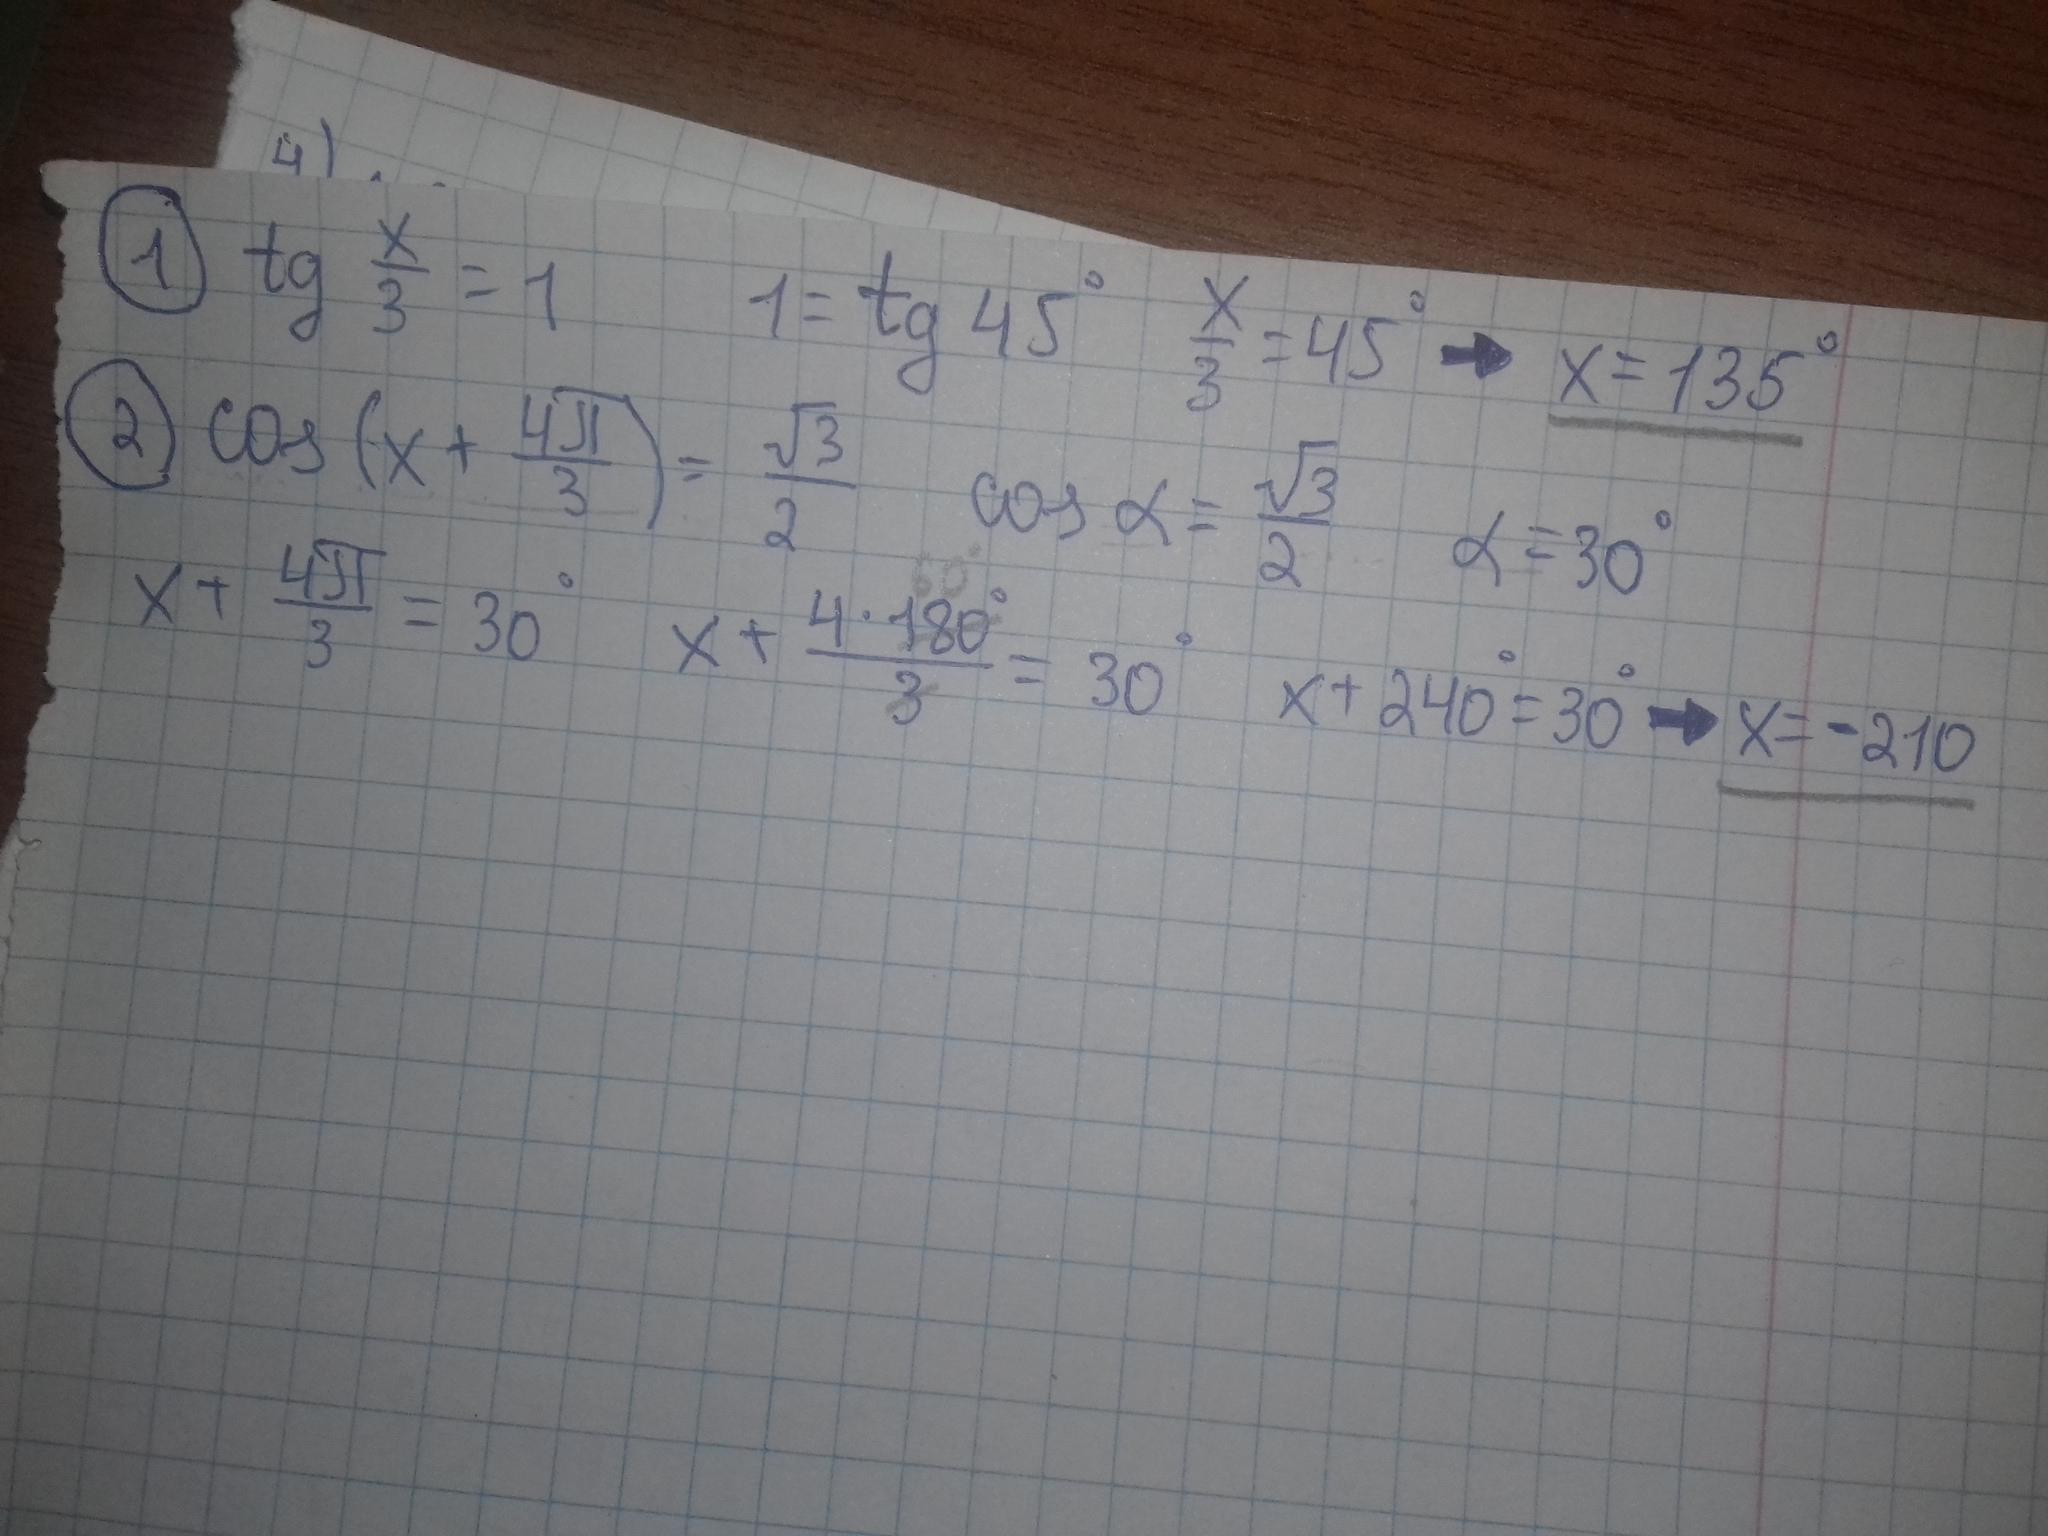 4)
① tg x/3 = 1 1 = tg 45° x/3 = 45° → x = 135°
② cos (x + 4π/3) = √3/2 cos α = √3/2 α = 30°
60°
x + 4π/3 = 30° x + 4·180°/3 = 30° x + 240° = 30° → x = -210